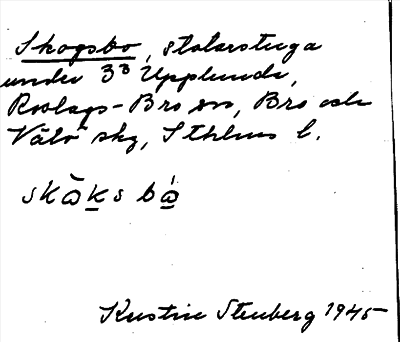 Skogsbo, statarstuga
under 3³ Upplunda,
Roslags-Bro sn, Bro och
Vätö skg, Sthlms l.
skɷ̀ks bɷ́
Kerstin Stenberg 1945